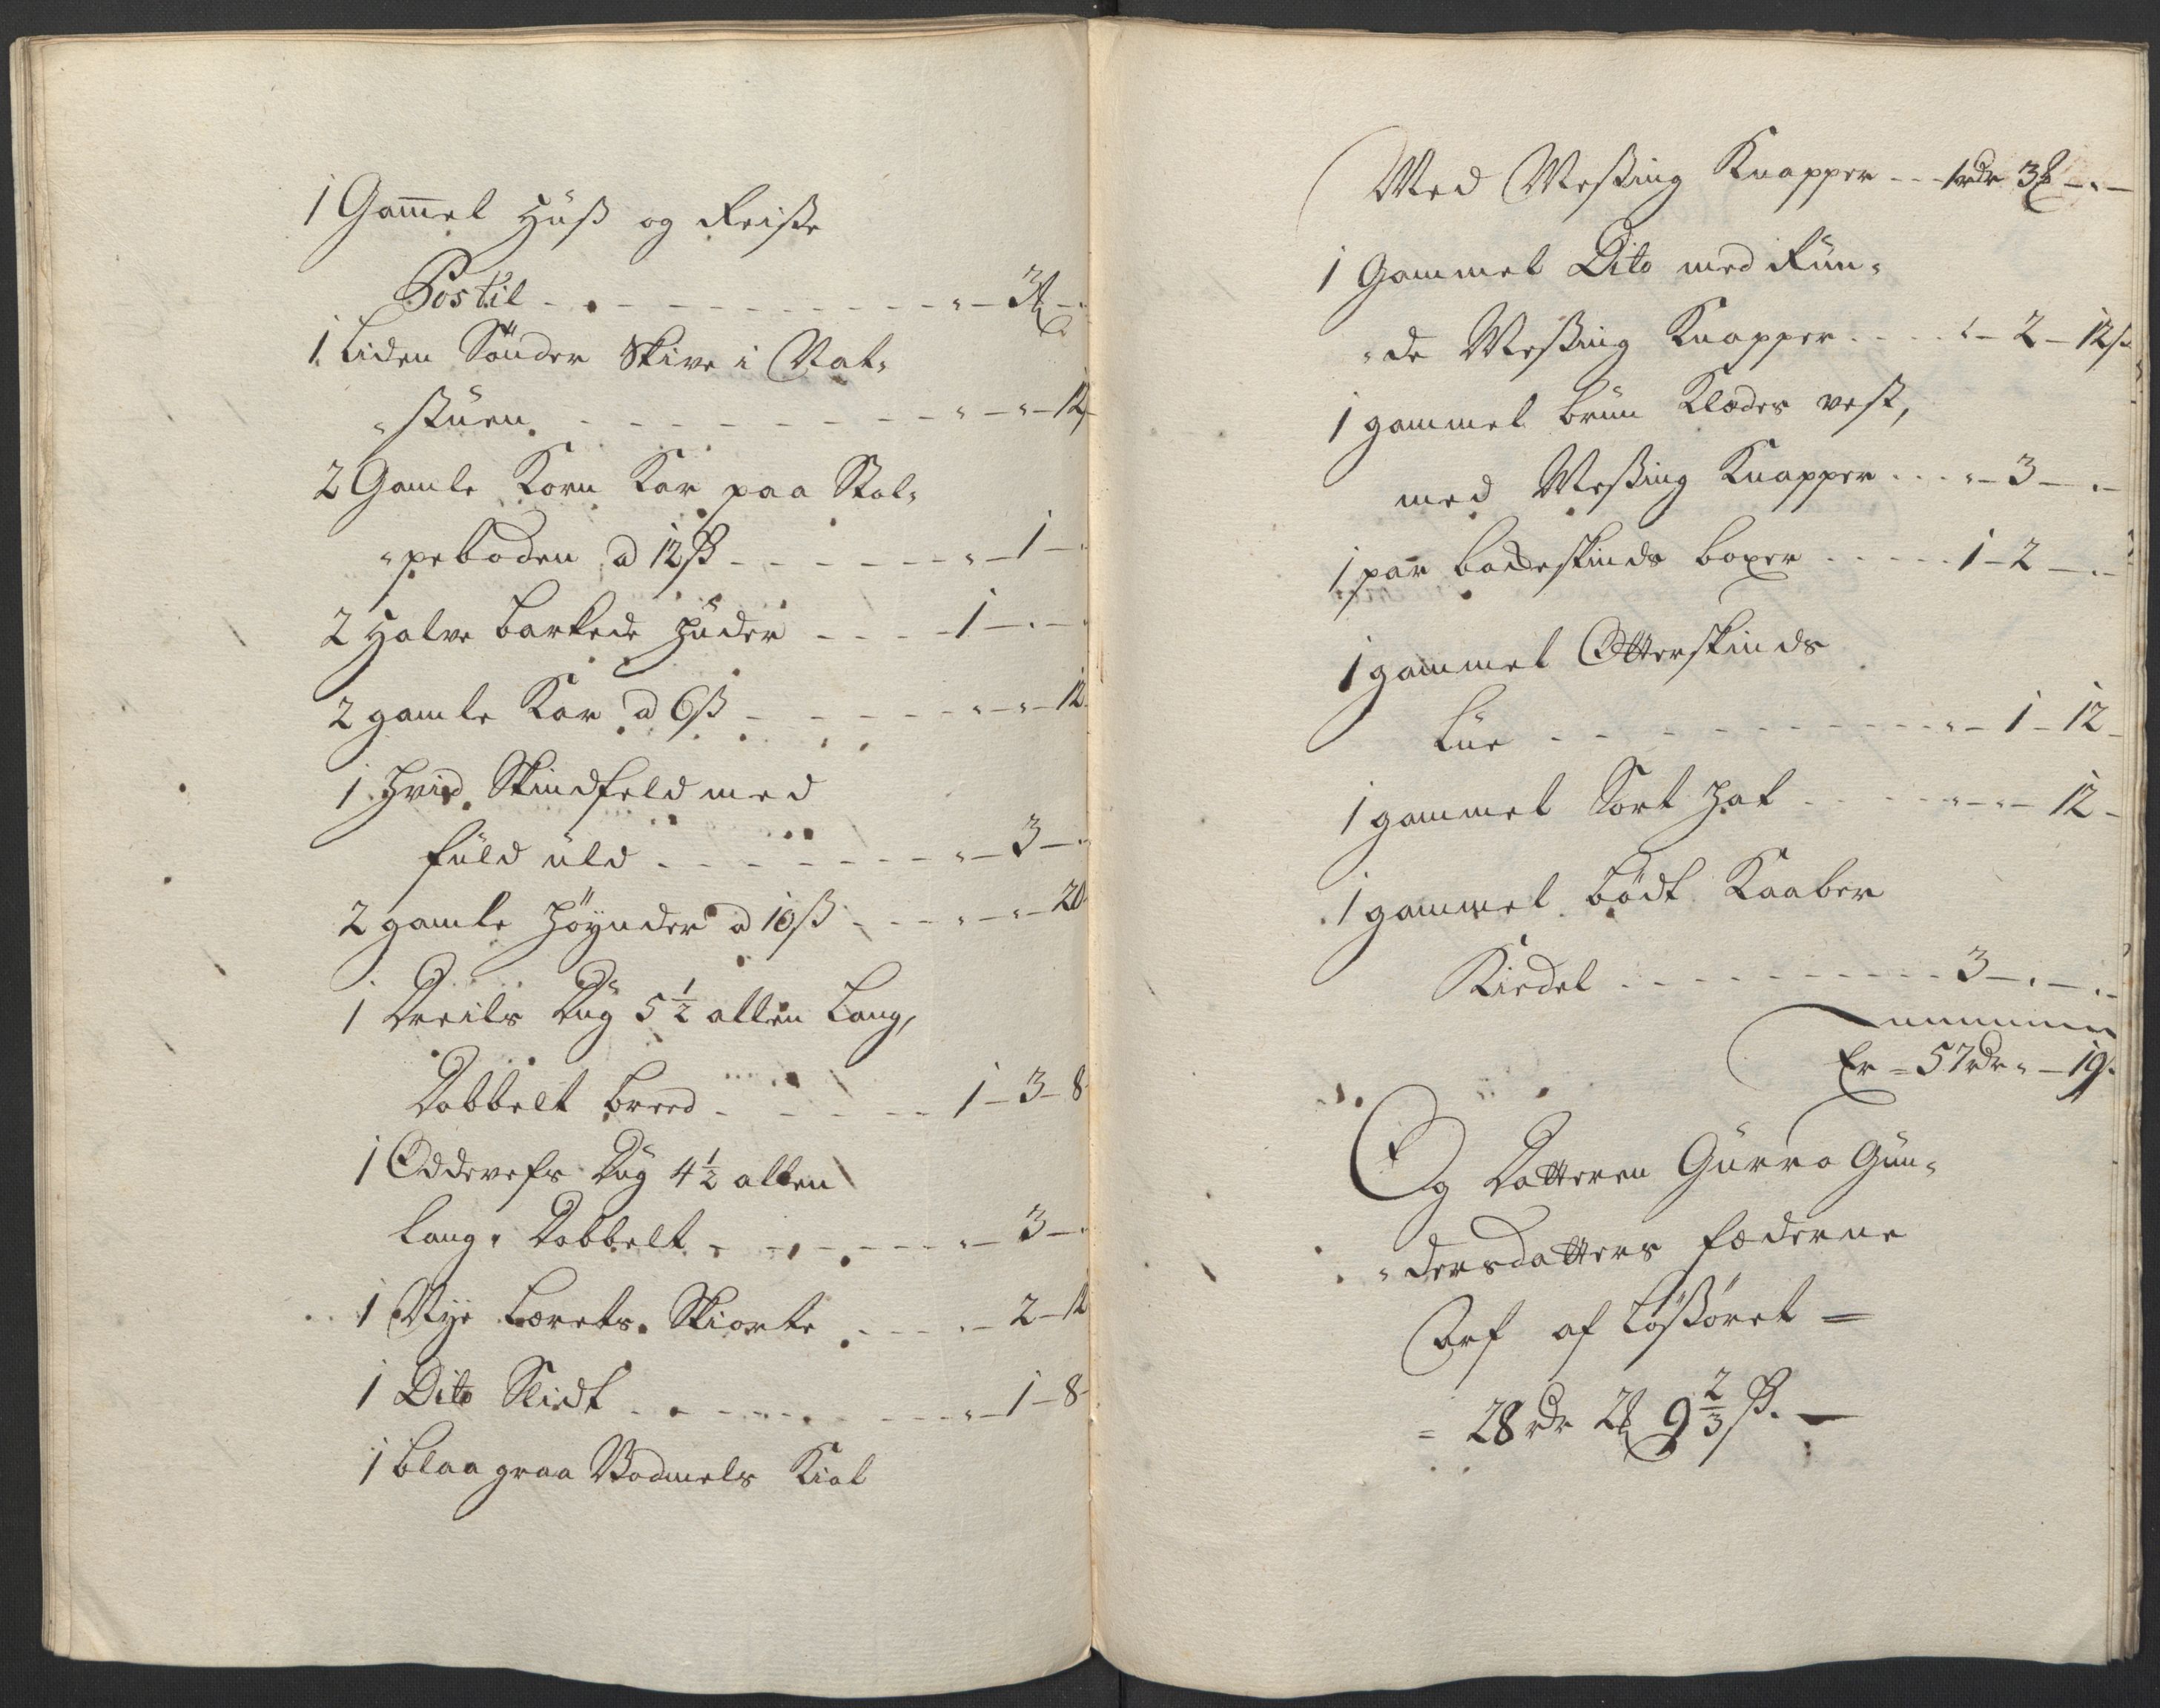 1 Gam̅el Hüß og Reiße
Postil - - - - - - - - - " - 3 ₰ - "
1 Liden Sönder Skive i Nat-
"stüen - - - - - - - - " - " - 12
2 Gamle Korn Kar paa Stol-
"peboden a 12 ß - - - - - - " - 1 - "
2 Halve barkede Hüder - - - - 1 - " - "
2 gamle Kar a 6 ß - - - - - - " - " - 12
1 Hvid Skindfeld med
füld üld - - - - - - - - " - 3 - "
2 gamle Höynder a 10 ß - - - " - " - 20
1 Dreils Dug 5 1/2 allen Lang,
Dobbelt breed - - - - - 1 - 3 - 8
1 Oddevefs Dug 4 1/2 allen
lang, Dobbelt - - - - - - " - 3 - "
1 Nye Lærets Skiorte - - - " - 2 - 12
1 Dito Slidt - - - - - - - - " - 1 - 8
1 blaa graa Vadmels Kiol
Med Meßing Knapper - - - 1 rdr 3 ₰ - " -
1 Gammel Dito med Rün-
"de Meßing Knapper - - - - " - 2 - 12 ß
1 gammel brün Klædes vest,
med Meßing Knapper - - - " - 3 - " -
1 par bockeskinds boxer - - - - - 1 - 2 - " -
1 gammel Otterskinds
Lüe - - - - - - - - - - - " - 1 - 12 -
1 gammel Sort Hat - - - - - " - " - 12 -
1 gammel bödt Kaaber
Kiedel - - - - - - - - - - 3 - " - " -
Er = 57 rdr " - 19 ß
Og Datteren Gürro Gün-
"dersdatters fæderne
Arf af Lößöret =
= 28 rdr 2 ₰ 9 2/3 ß. -